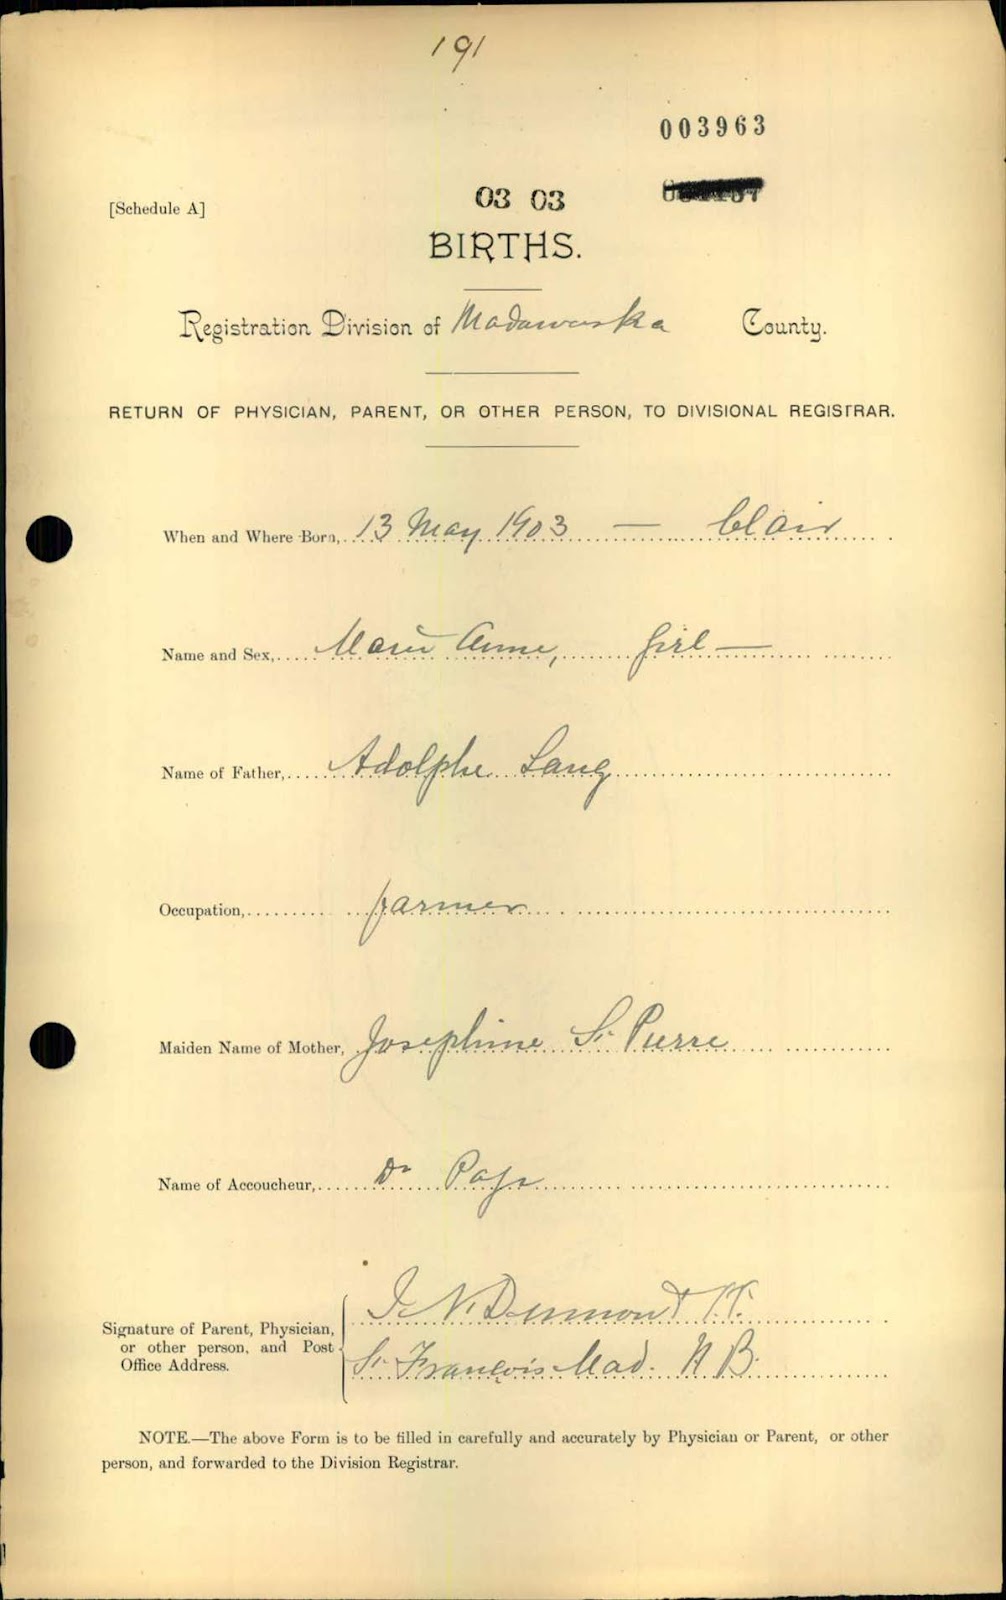 191
003963
03 03
[Schedule A]
BIRTHS.
Registration Division of Madawaska County.
RETURN OF PHYSICIAN, PARENT, OR OTHER PERSON, TO DIVISIONAL REGISTRAR.
When and Where Born, 13 May 1903 — Clair
Name and Sex, Marie Anne, girl —
Name of Father, Adolphe Lang
Occupation, farmer
Maiden Name of Mother, Josephine St Pierre
Name of Accoucheur, Dr
Signature of Parent, Physician, or other person, and Post Office Address.
J. N. Dumont
St François Mad. N B.
NOTE.—The above Form is to be filled in carefully and accurately by Physician or Parent, or other
person, and forwarded to the Division Registrar.